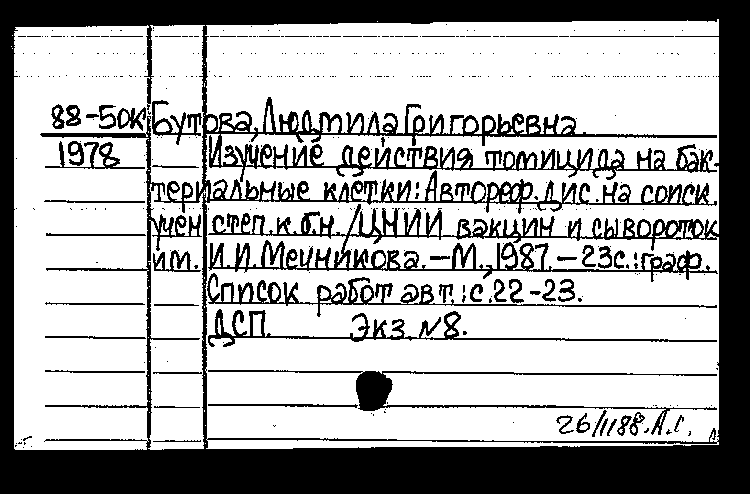 88-50К Бутова, Людмила Григорьевна.
1978 Изучение действия томицида на бак-
териальные клетки: Автореф. дис. на соиск.
учен степ. к. б.н. /ЦНИИ вакцин и сывороток
им. И.И. Мечникова. - М., 1987. - 23с.: граф.
Список работ авт.: с. 22-23.
ДСП. Экз. №8.
26/1188. А.Г.